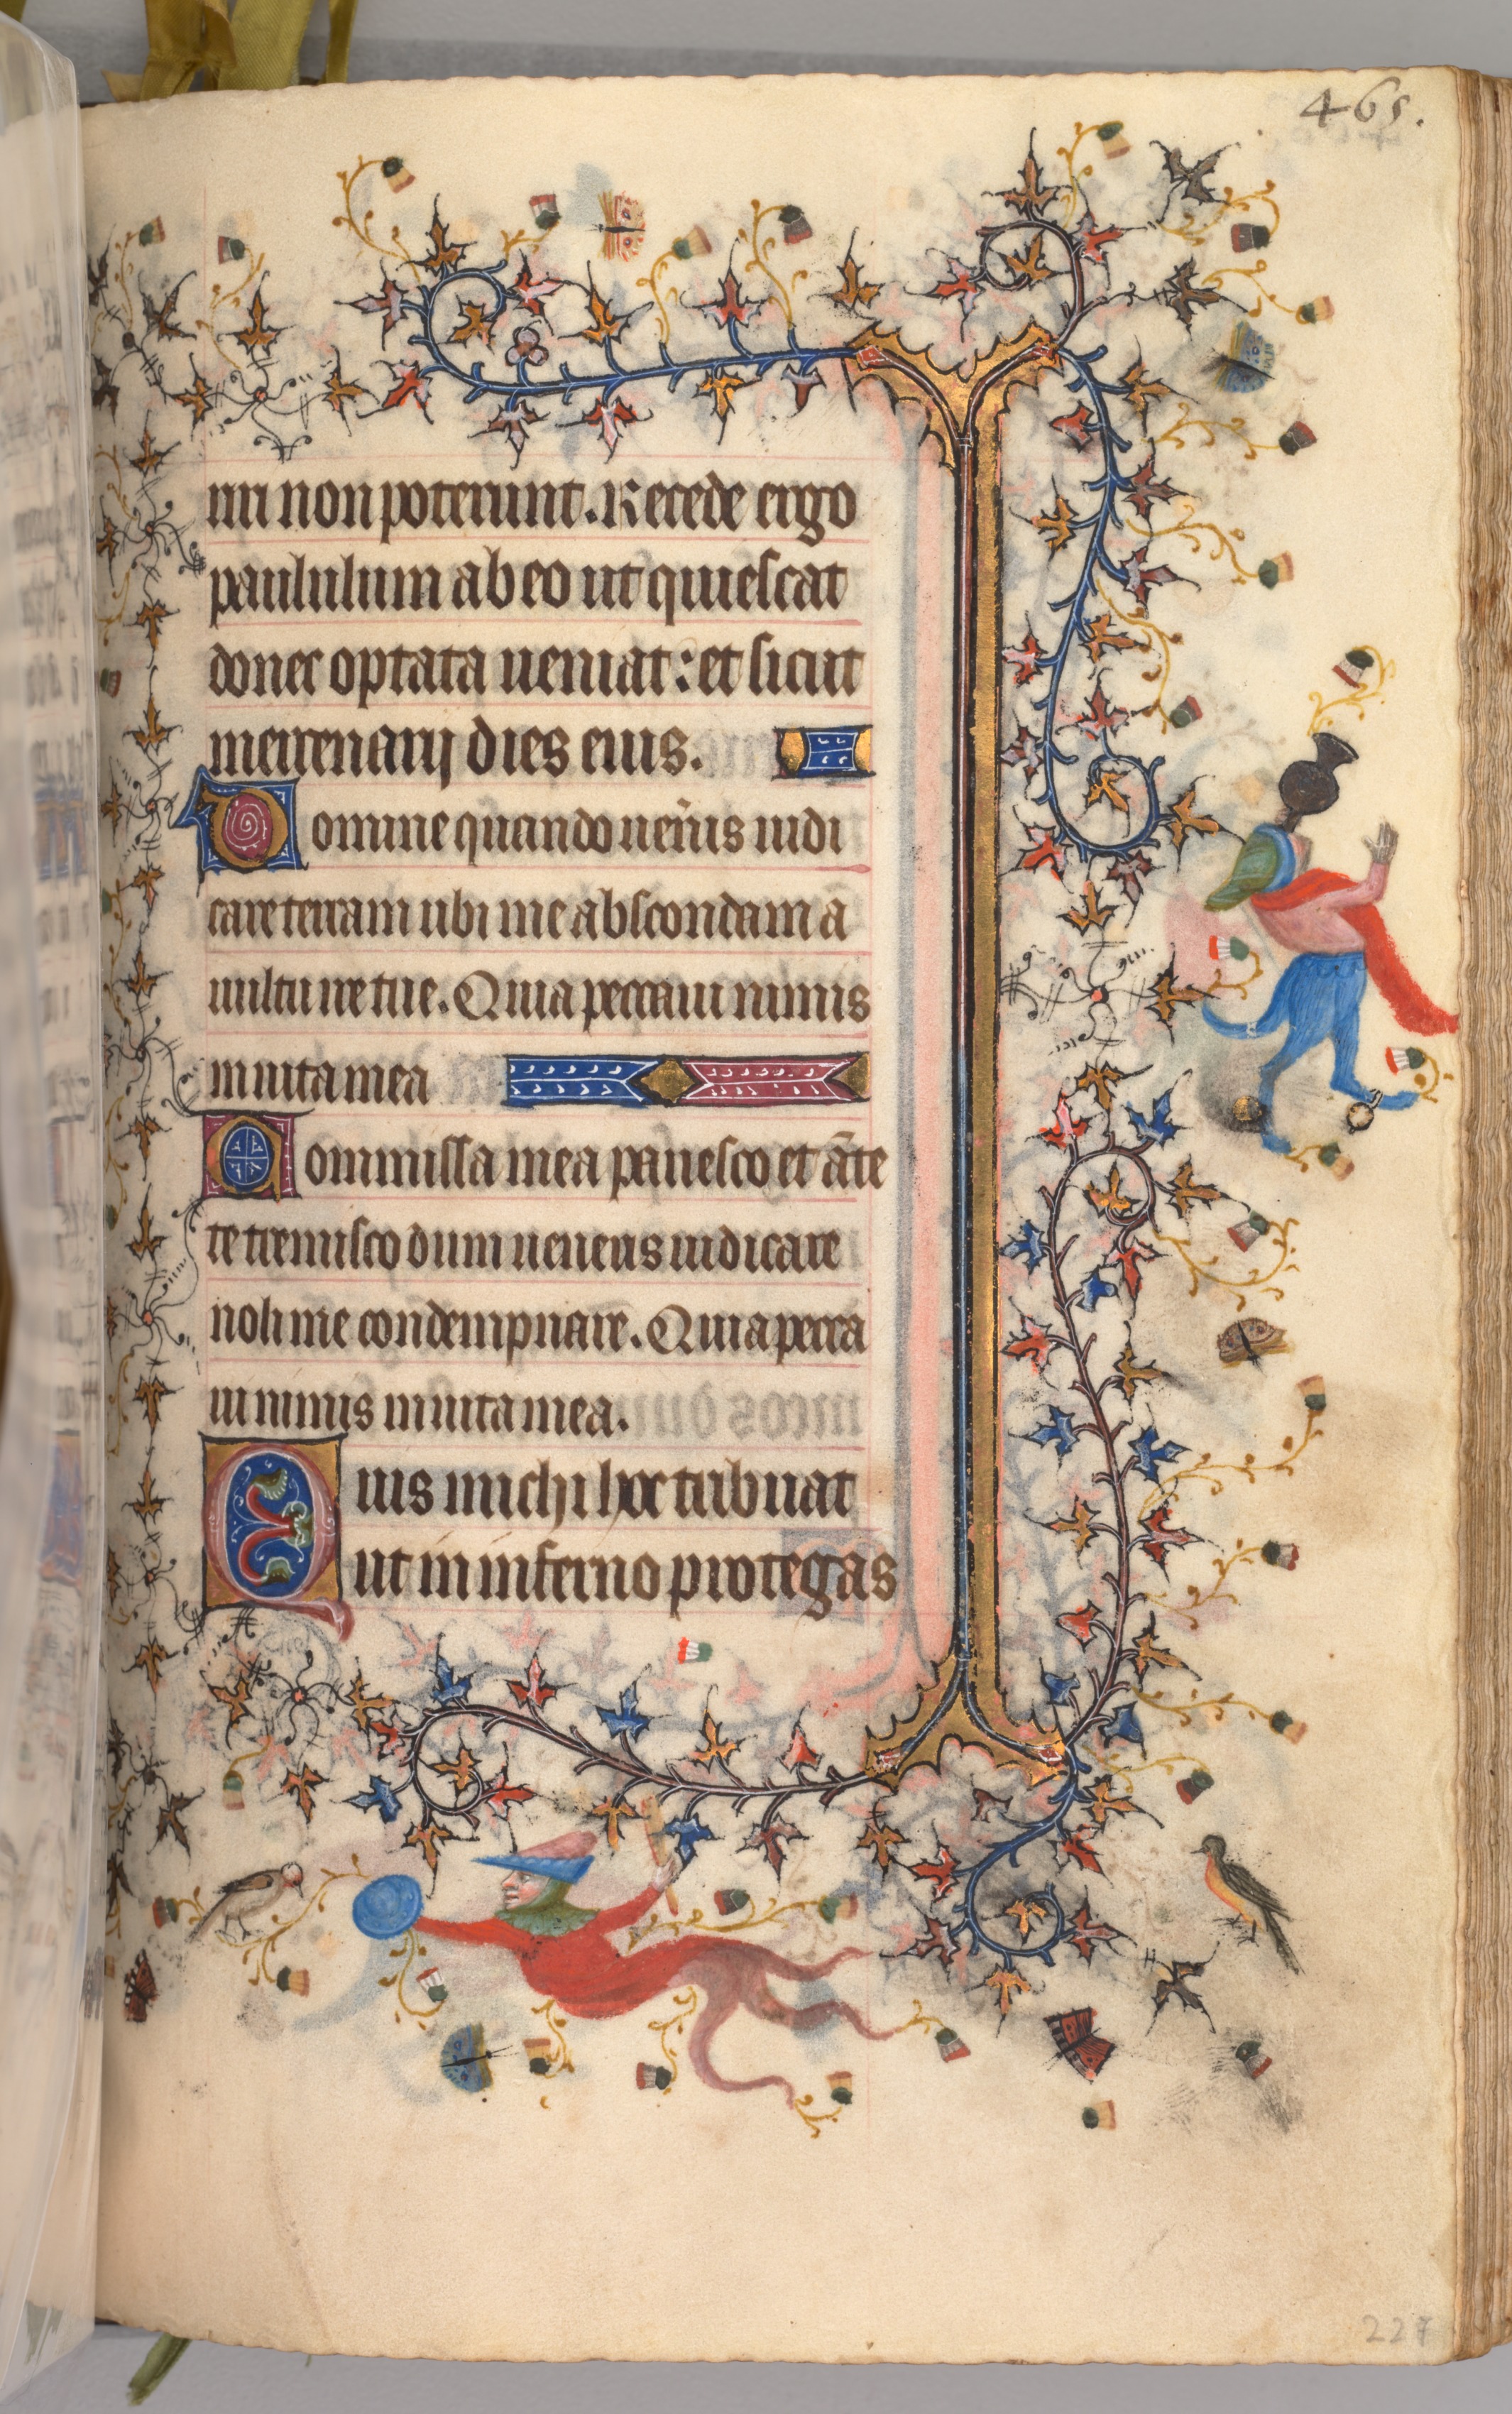 465.
iri non poterunt. Recede ergo
paululum ab eo ut quiescat
donec optata ueniat: et sicut
mercenarij dies eius.
Domine quando ueñis iudi
care terram ubi me abscondam a
uultu ire tue. Quia peccaui nimis
in uita mea
Commissa mea pauesco et ãte
te eremisco dum ueneris iudicare
noli me condempnare. Quia pecca
ui nimis in uita mea.
Quis michi hoc tribuat
ut in inferno protegas
227